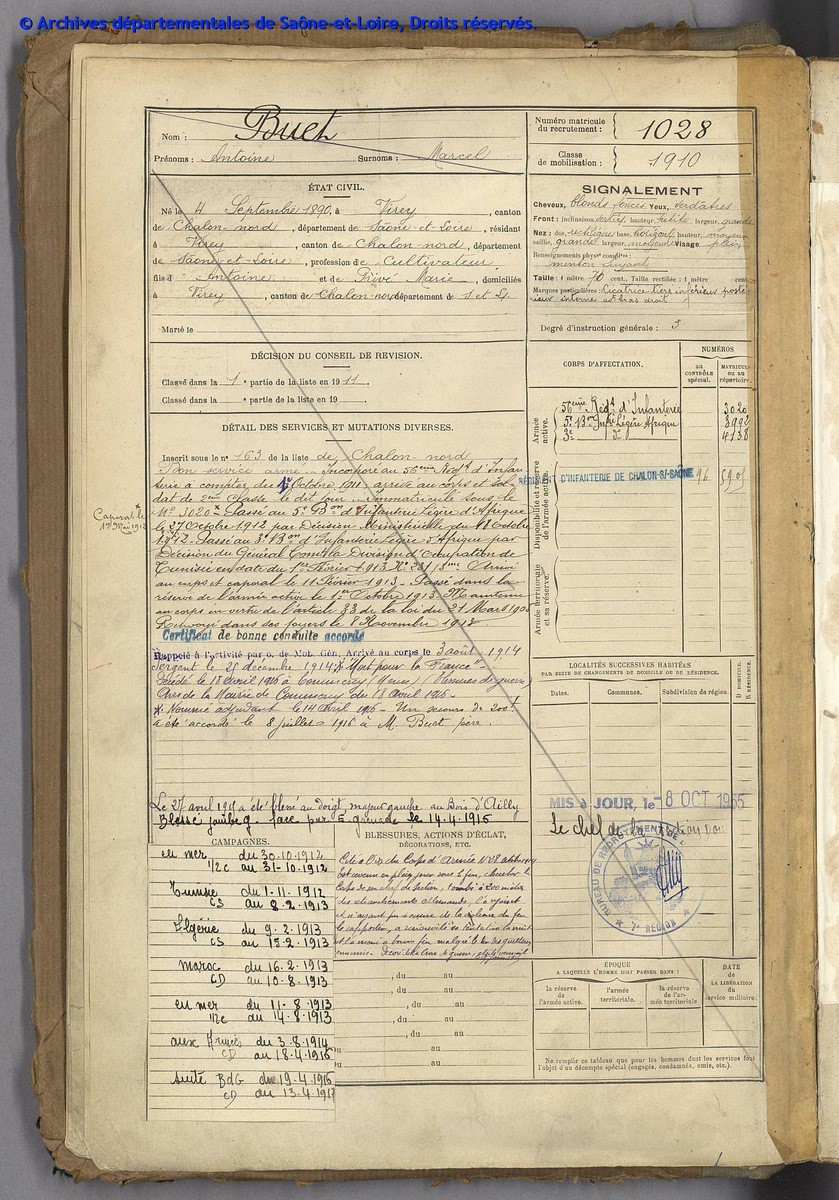 © Archives départementales de Saône-et-Loire, Droits réservés.
Nom : Buet
Prénoms : Antoine Surnoms : Marcel
Numéro matricule du recrutement : 1028
Classe de mobilisation : 1910
ÉTAT CIVIL.
Né le 4 Septembre 1890, à Virey, canton
de Chalon-nord, département de Saône-et-Loire, résidant
à Virey, canton de Chalon-nord, département
de Saône-et-Loire, profession de Cultivateur
fils d'Antoine et de Privé Marie, domiciliés
à Virey, canton de Chalon-nord, département de S et L.
Marié le
SIGNALEMENT
Cheveux, blonds foncés Yeux, verdâtres
Front : inclinaison hauteur, petite largeur, grande
Nez : dos, rectiligne base, hauteur, moyen
saillie, grande largeur, moyenne Visage plein
Renseignements physiq. complres :
menton fuyant
Taille : 1 mètre 70 cent., Taille rectifiée : 1 mètre cent.
Marques particulières : Cicatrice tiers inférieur posté-
rieur interne bras droit
Degré d'instruction générale : 3
DÉCISION DU CONSEIL DE REVISION.
Classé dans la 1e partie de la liste en 1911.
Classé dans la e partie de la liste en 19
DÉTAIL DES SERVICES ET MUTATIONS DIVERSES.
Inscrit sous le n° 163 de la liste de Chalon nord
Bon service armé. Incorporé au 56ème Régt d'Infan-
terie à compter du 1er Octobre 1911. arrivé au corps et sol-
dat de 2ème classe le dit jour. Immatriculé sous le
N° 3020. Passé au 5e Bon d'Infanterie Légère d'Afrique
le 27 Octobre 1912 par Décision Ministérielle du 18 Octobre
1912. Passé au 3e Bon d'Infanterie Légère d'Afrique par
Décision du Général Comt la Division d'Occupation de
Tunisie en date du 1er Février 1913 N° Arrivé
au corps et caporal le 11 Février 1913. Passé dans la
réserve de l'armée active le 1er Octobre 1913. Maintenu
au corps en vertu de l'article 33 de la loi du 21 Mars 1905
Renvoyé dans ses foyers le 8 Novembre 1913
Caporal le
1er Mai 1912
Certificat de bonne conduite accordé
Rappelé à l'activité par o. de Mob. Gén. Arrivé au corps le 3 août 1914
Sergent le 25 décembre 1914 * Mort pour la France
Décédé le 18 avril 1916 à Commercy (Meuse) (Blessures de guerre)
Avis de la Mairie de Commercy du 18 Avril 1916.
* Nommé adjudant le 14 Avril 1916 - Un secours de 200f
a été accordé le 8 juillet 1916 à M. Buet père.
Le 27 avril 1915 a été blessé au doigt majeur gauche au Bois d'Ailly
Blessé jambe g. face par E grenade le 14.4.1916
CORPS D'AFFECTATION.
NUMÉROS
au CONTRÔLE spécial.
MATRICULE ou au répertoire.
Armée active.
56ème Régt d'Infanterie 3020
5e Bon Infie Légère Afrique 3992
3e do 4138
Disponibilité et réserve de l'armée active.
RÉGIMENT D'INFANTERIE DE CHALON-S/-SAÔNE 96
Armée territoriale et sa réserve.
LOCALITÉS SUCCESSIVES HABITÉES
PAR SUITE DE CHANGEMENTS DE DOMICILE OU DE RÉSIDENCE.
Dates. Communes. Subdivision de région. D. DOMICILE. R. RÉSIDENCE.
MIS à JOUR, le - 8 OCT 1955
Le chef de
BUREAU DE RECRUTEMENT DE
* 7e RÉGION *
CAMPAGNES.
en mer du 30-10-1912
1/2c au 31-10-1912
Tunisie du 1-11-1912
CS au 8-2-1913
Algérie du 9-2-1913
CS au 15-2-1913
Maroc du 16-2-1913
CD au 10-8-1913
en mer du 11-8-1913
1/2c du 14-8-1913
aux Armées du 3-8-1914
CD au 18-4-1916
suite BdG du 19-4-1916
CD au 13-4-1917
BLESSURES, ACTIONS D'ÉCLAT,
DÉCORATIONS, ETC.
Cité à l'O. du Corps d'Armée N°
est revenu en plein jour sous le feu, chercher le
corps de son chef de section, tombé à 200 mètres
des retranchements allemands, l'a rejoint
et n'ayant pu à cause de la violence du feu
le rapporter, a renouvelé sa tentative la nuit
et l'a menée à bonne fin malgré le feu des guetteurs
ennemis. Décoré de la Croix de guerre, étoile vermeil
, du au
, du au
, du au
, du au
, du au
du au
au
ÉPOQUE
A LAQUELLE L'HOMME DOIT PASSER DANS :
la réserve de l'armée active.
l'armée territoriale.
la réserve de l'armée territoriale
DATE de la LIBÉRATION du service militaire.
Ne remplir ce tableau que pour les hommes dont les services font
l'objet d'un décompte spécial (engagés, condamnés, omis, etc.).